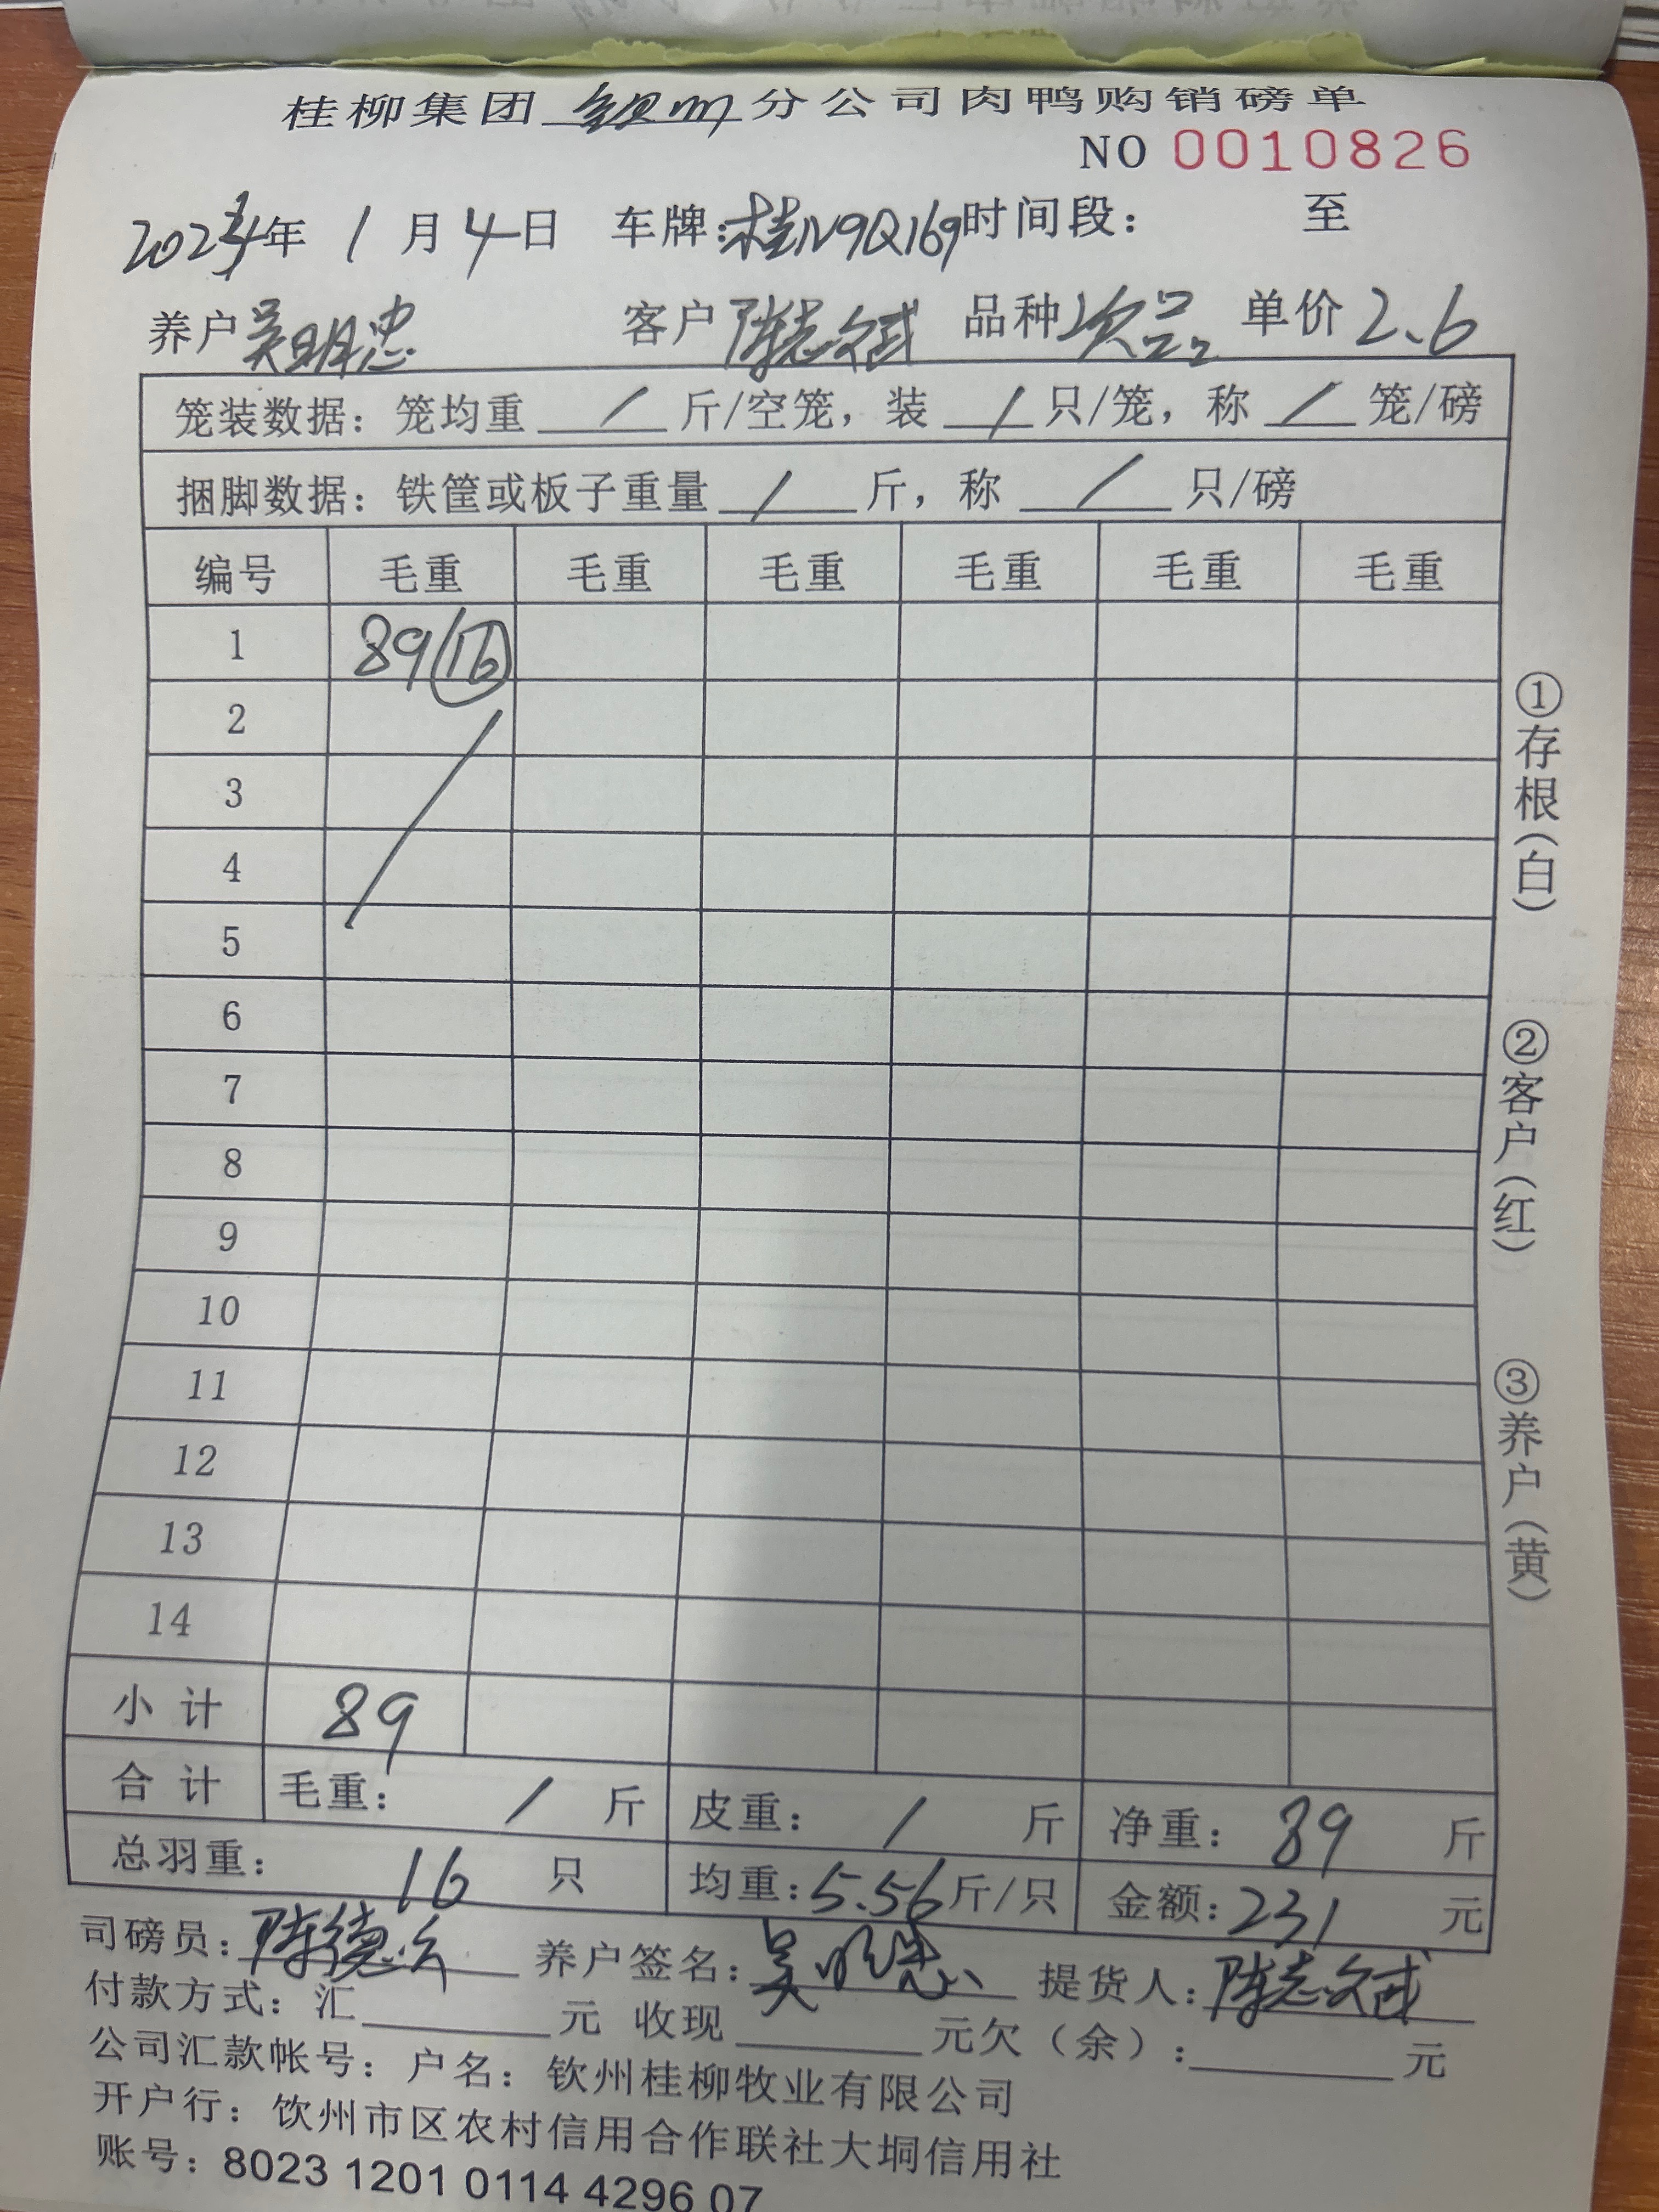 桂柳集团 钦州 分公司肉鸭购销磅单
NO 0010826
2024年 1 月 4 日 车牌:桂N9Q169 时间段: 至
养户 吴明忠 客户 陈志斌 品种 次品 单价 2.6
笼装数据: 笼均重 / 斤/空笼, 装 / 只/笼, 称 / 笼/磅
捆脚数据: 铁筐或板子重量 / 斤, 称 / 只/磅
编号 毛重 毛重 毛重 毛重 毛重 毛重
1 89 16
2
3
4
5
6
7
8
9
10
11
12
13
14
小计 89
合计 毛重: / 斤 皮重: / 斤 净重: 89 斤
总羽重: 16 只 均重: 5.56 斤/只 金额: 231 元
司磅员: 陈德 养户签名: 吴明忠 提货人: 陈志斌
付款方式: 汇 元 收现 元欠(余): 元
公司汇款帐号: 户名: 钦州桂柳牧业有限公司
开户行: 钦州市区农村信用合作联社大垌信用社
账号: 8023 1201 0114 4296 07
①存根(白)
②客户(红)
③养户(黄)